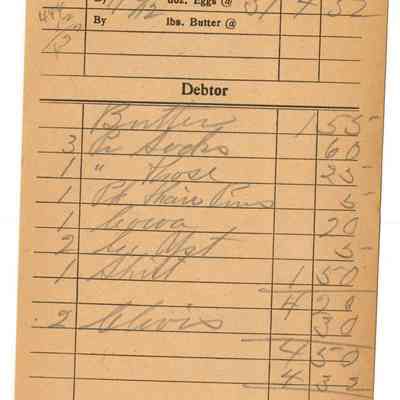 By 11 1/2 doz. Eggs @ 37 4 32
By lbs. Butter @
12
Debtor
Butter 1 55
3 Pr Socks 60
1 " Hose 25
1 Pk Hair Pins 5
1 Cocoa 20
2 5
1 Shirt 1 50
4 20
2 30
4 50
4 32